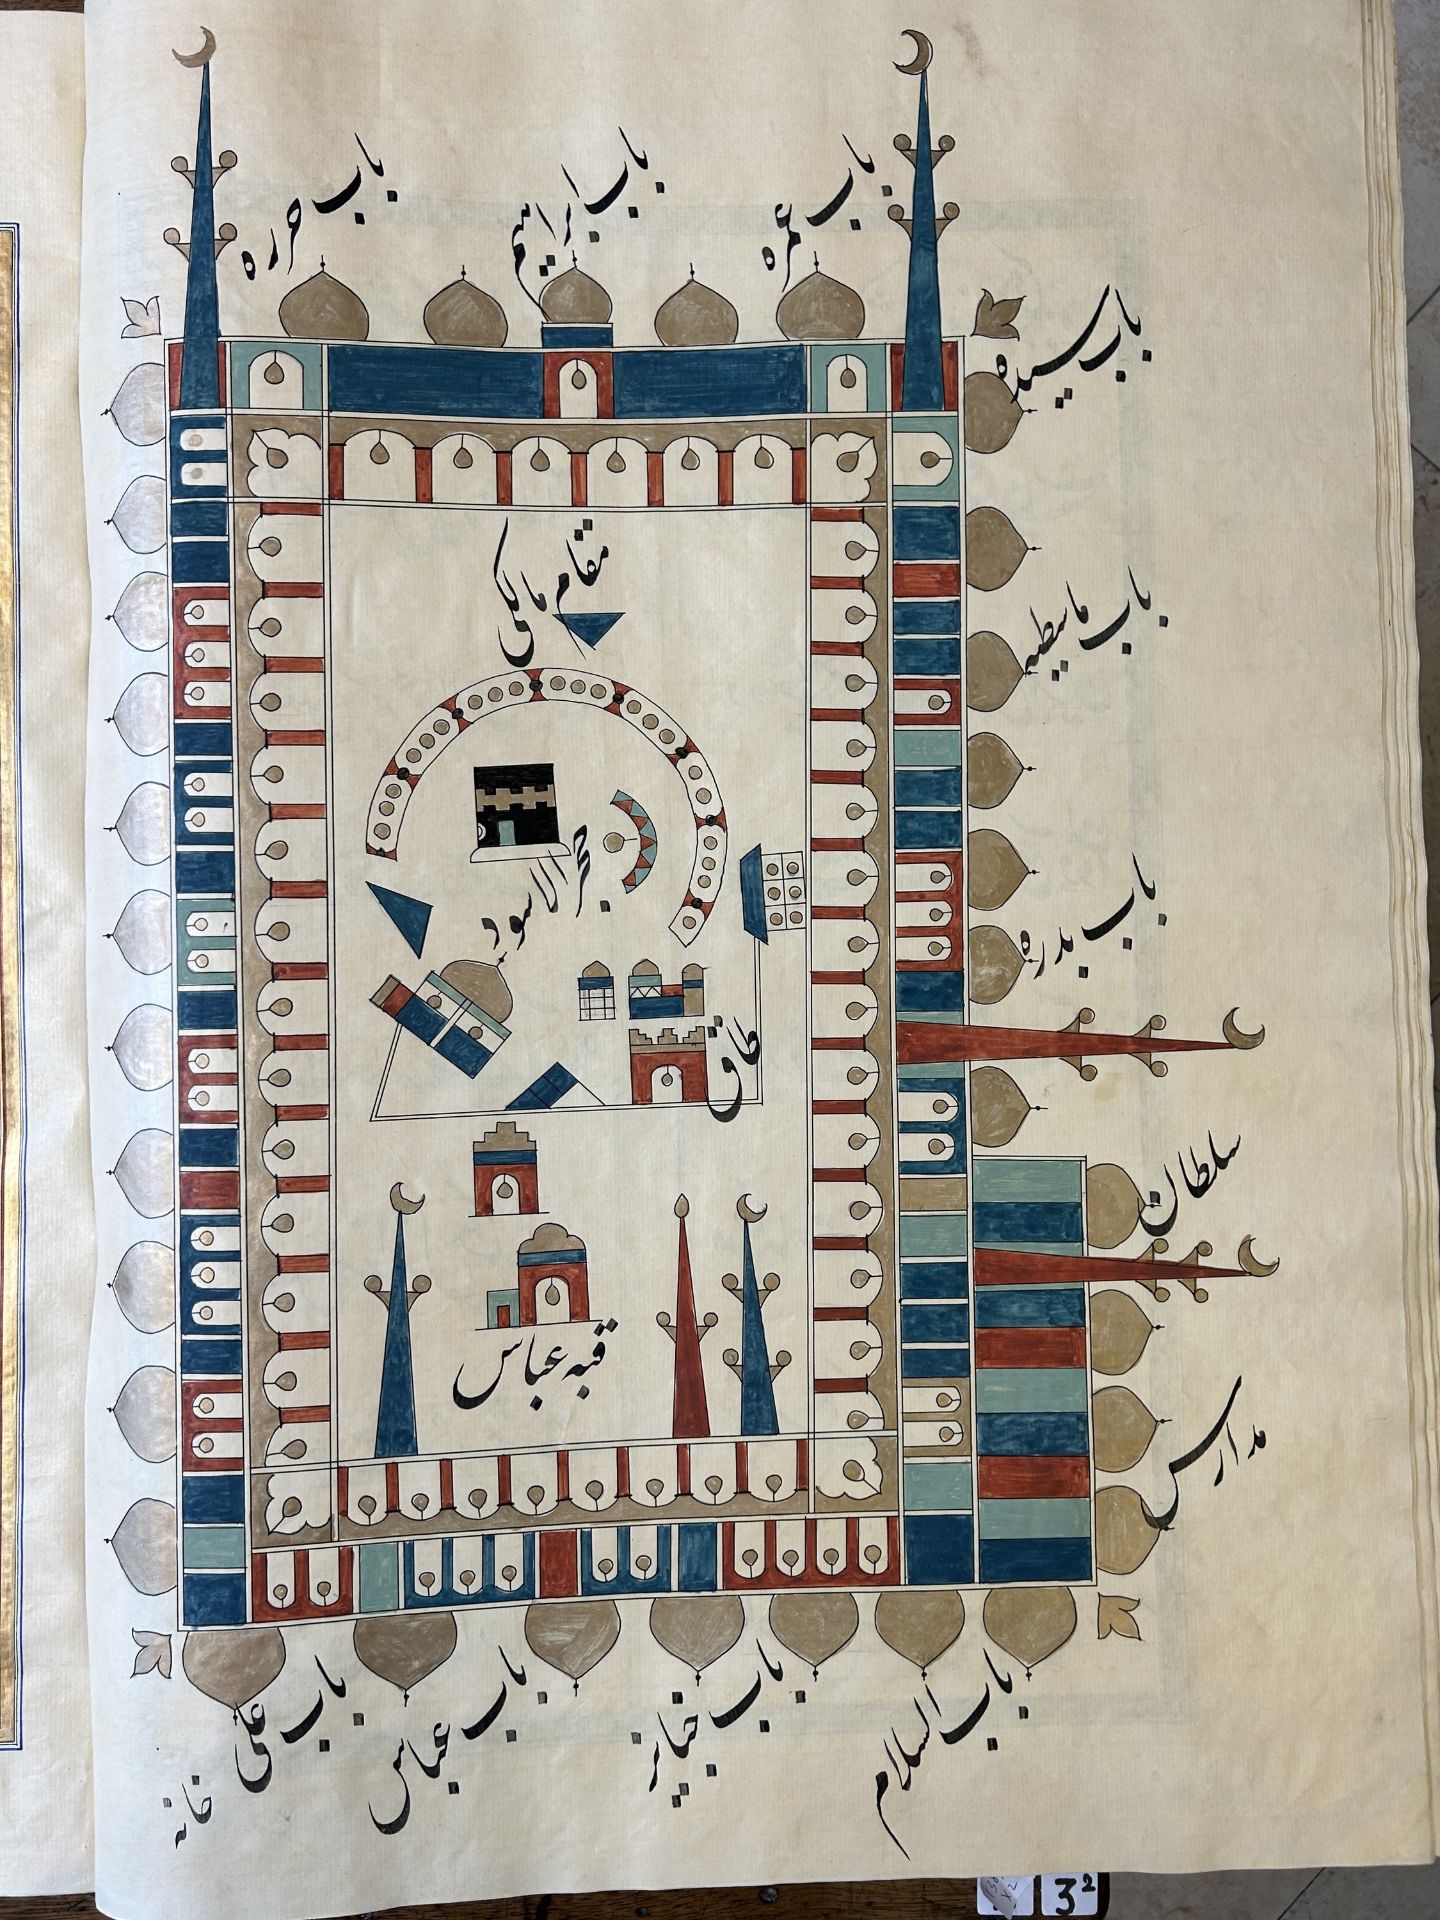 باب حرره
باب ابراهیم
باب عمره
باب سیده
مقام مالکی
باب ماسطیه
حجر الاسود
باب بدره
طاق
سلطان
قبه عباس
مدارس
باب علی
باب عباس
باب
باب السلام
خانه
3²